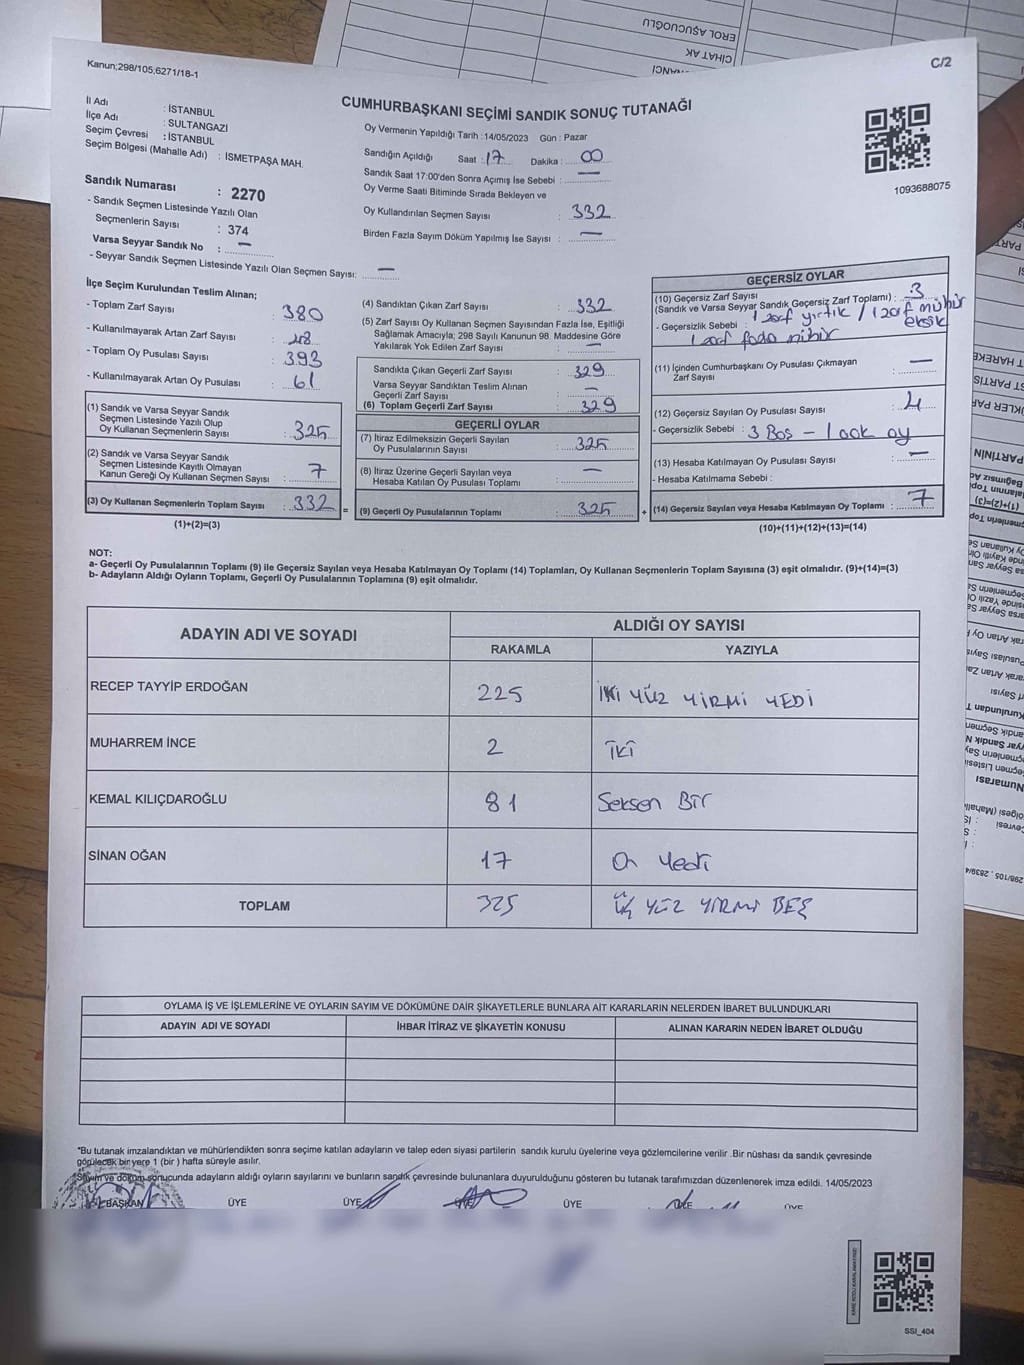 EROL AŞUCUOĞLU
CİHAT AK
Kanun;298/105;6271/18-1
C/2
CUMHURBAŞKANI SEÇİMİ SANDIK SONUÇ TUTANAĞI
İl Adı : İSTANBUL
İlçe Adı : SULTANGAZİ
Seçim Çevresi : İSTANBUL
Seçim Bölgesi (Mahalle Adı) : İSMETPAŞA MAH.
Oy Vermenin Yapıldığı Tarih :14/05/2023 Gün : Pazar
Sandığın Açıldığı Saat : 17 Dakika : 00
Sandık Saat 17:00'den Sonra Açımış İse Sebebi : —
Oy Verme Saati Bitiminde Sırada Bekleyen ve
Oy Kullandırılan Seçmen Sayısı : 332
Birden Fazla Sayım Döküm Yapılmış İse Sayısı : —
1093688075
Sandık Numarası : 2270
- Sandık Seçmen Listesinde Yazılı Olan
Seçmenlerin Sayısı : 374
Varsa Seyyar Sandık No : —
- Seyyar Sandık Seçmen Listesinde Yazılı Olan Seçmen Sayısı: —
İlçe Seçim Kurulundan Teslim Alınan;
- Toplam Zarf Sayısı : 380
- Kullanılmayarak Artan Zarf Sayısı : 48
- Toplam Oy Pusulası Sayısı : 393
- Kullanılmayarak Artan Oy Pusulası : 61
(1) Sandık ve Varsa Seyyar Sandık
Seçmen Listesinde Yazılı Olup
Oy Kullanan Seçmenlerin Sayısı : 325
(2) Sandık ve Varsa Seyyar Sandık
Seçmen Listesinde Kayıtlı Olmayan
Kanun Gereği Oy Kullanan Seçmen Sayısı : 7
(3) Oy Kullanan Seçmenlerin Toplam Sayısı : 332 =
(1)+(2)=(3)
(4) Sandıktan Çıkan Zarf Sayısı : 332
(5) Zarf Sayısı Oy Kullanan Seçmen Sayısından Fazla İse, Eşitliği
Sağlamak Amacıyla; 298 Sayılı Kanunun 98. Maddesine Göre
Yakılarak Yok Edilen Zarf Sayısı : —
Sandıkta Çıkan Geçerli Zarf Sayısı : 329
Varsa Seyyar Sandıktan Teslim Alınan
Geçerli Zarf Sayısı : —
(6) Toplam Geçerli Zarf Sayısı : 329
GEÇERLİ OYLAR
(7) İtiraz Edilmeksizin Geçerli Sayılan
Oy Pusulalarının Sayısı : 325
(8) İtiraz Üzerine Geçerli Sayılan veya
Hesaba Katılan Oy Pusulası Toplamı : —
(9) Geçerli Oy Pusulalarının Toplamı : 325 +
GEÇERSİZ OYLAR
(10) Geçersiz Zarf Sayısı
(Sandık ve Varsa Seyyar Sandık Geçersiz Zarf Toplamı) : 3
- Geçersizlik Sebebi : 1 zarf yırtık / 1 zarf mühür eksik
1 zarf fazla mühür
(11) İçinden Cumhurbaşkanı Oy Pusulası Çıkmayan
Zarf Sayısı : —
(12) Geçersiz Sayılan Oy Pusulası Sayısı : 4
- Geçersizlik Sebebi : 3 Boş - 1 açık oy
(13) Hesaba Katılmayan Oy Pusulası Sayısı : —
- Hesaba Katılmama Sebebi :
(14) Geçersiz Sayılan veya Hesaba Katılmayan Oy Toplamı : 7
(10)+(11)+(12)+(13)=(14)
NOT:
a- Geçerli Oy Pusulalarının Toplamı (9) ile Geçersiz Sayılan veya Hesaba Katılmayan Oy Toplamı (14) Toplamları, Oy Kullanan Seçmenlerin Toplam Sayısına (3) eşit olmalıdır. (9)+(14)=(3)
b- Adayların Aldığı Oyların Toplamı, Geçerli Oy Pusulalarının Toplamına (9) eşit olmalıdır.
ADAYIN ADI VE SOYADI ALDIĞI OY SAYISI
RAKAMLA YAZIYLA
RECEP TAYYİP ERDOĞAN 225 İKİ YÜZ YİRMİ YEDİ
MUHARREM İNCE 2 İKİ
KEMAL KILIÇDAROĞLU 81 Seksen Bir
SİNAN OĞAN 17 On Yedi
TOPLAM 325 ÜÇ YÜZ YİRMİ BEŞ
OYLAMA İŞ VE İŞLEMLERİNE VE OYLARIN SAYIM VE DÖKÜMÜNE DAİR ŞİKAYETLERLE BUNLARA AİT KARARLARIN NELERDEN İBARET BULUNDUKLARI
ADAYIN ADI VE SOYADI İHBAR İTİRAZ VE ŞİKAYETİN KONUSU ALINAN KARARIN NEDEN İBARET OLDUĞU
*Bu tutanak imzalandıktan ve mühürlendikten sonra seçime katılan adayların ve talep eden siyasi partilerin sandık kurulu üyelerine veya gözlemcilerine verilir .Bir nüshası da sandık çevresinde
görülecek bir yere 1 (bir ) hafta süreyle asılır.
*Sayım ve döküm sonucunda adayların aldığı oyların sayılarını ve bunların sandık çevresinde bulunanlara duyurulduğunu gösteren bu tutanak tarafımızdan düzenlenerek imza edildi. 14/05/2023
BAŞKAN ÜYE ÜYE ÜYE ÜYE ÜYE ÜYE
SSİ_404